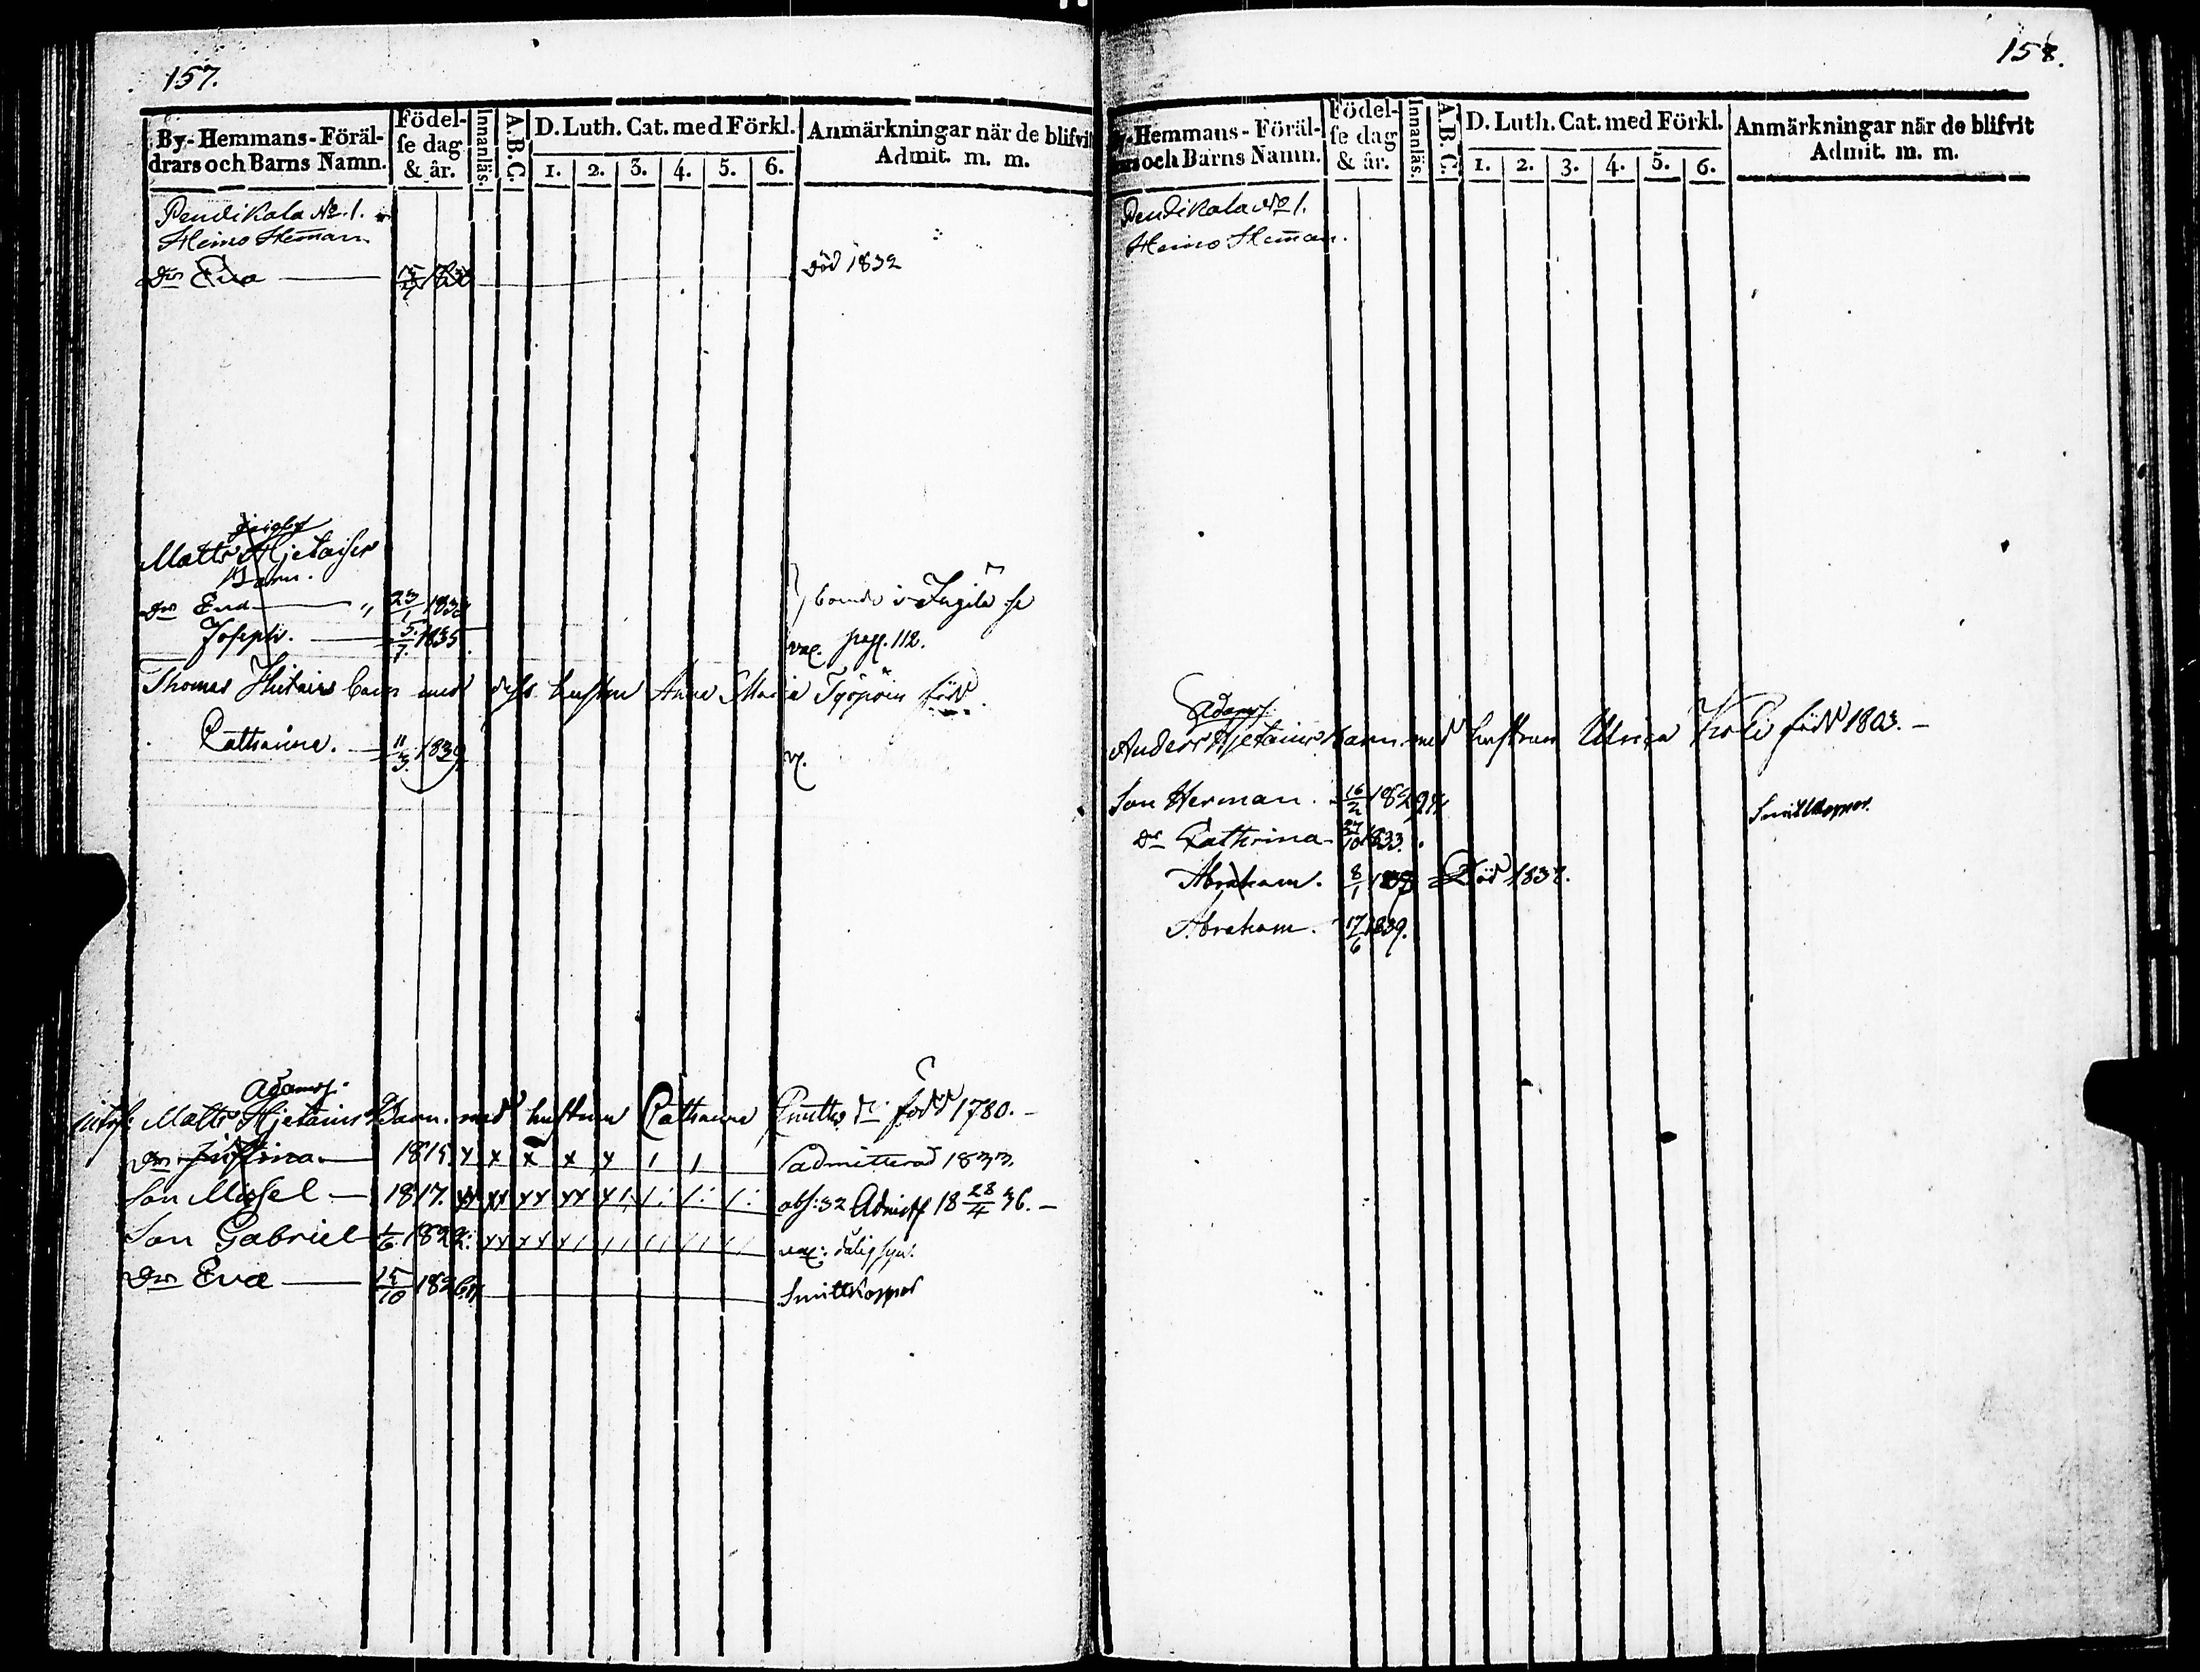 157.
By-Hemmans-Föräl-
drars och Barns Namn.
Födel-
se dag
& år.
Innanläs.
A.B.C.
D. Luth. Cat. med Förkl.
1. 2. 3. 4. 5. 6.
Anmärkningar när de blifvit
Admit. m. m.
Pendikala No. 1.
Heimo Heman
Dr Eva Död 1832
Matts Hjetaisen
Barn.
Dr Eva 23/1 183
Joseph. 5/7 1835 vac. pag. 112.
Thomas Hietains barn med dess hustru Anna Maria Töpöin född
Catharine. 11/3 1839. v.
Adamss.
Inhys: Matts Hjetains Barn med hustrun Catharina Knutts dr. född 1780. –
Dr Justina 1815. x x x x x / / admitterad 1833.
Son Missel 1817. xx xx xx xx x/ /: /: /: abs: 32 Admitt 18 28/4 36. –
Son Gabriel 1/6 1822: vac: dålig syn.
Dr Eva 15/10 1826 Smittkoppor
158.
By-Hemmans-Föräl-
drars och Barns Namn.
Födel-
se dag
& år.
Innanläs.
A.B.C.
D. Luth. Cat. med Förkl.
1. 2. 3. 4. 5. 6.
Anmärkningar när de blifvit
Admit. m. m.
Pendikala No 1.
Heimo Heman.
Adamss.
Anders Hjetains barn med hustrun Ulrica född 1803. –
Son Herman. 16/2 1829 Smittkoppor.
Dr Cathrina 27/10 1833.
Abraham. 8/1 Död 1838.
Abraham. 17/6 1839.